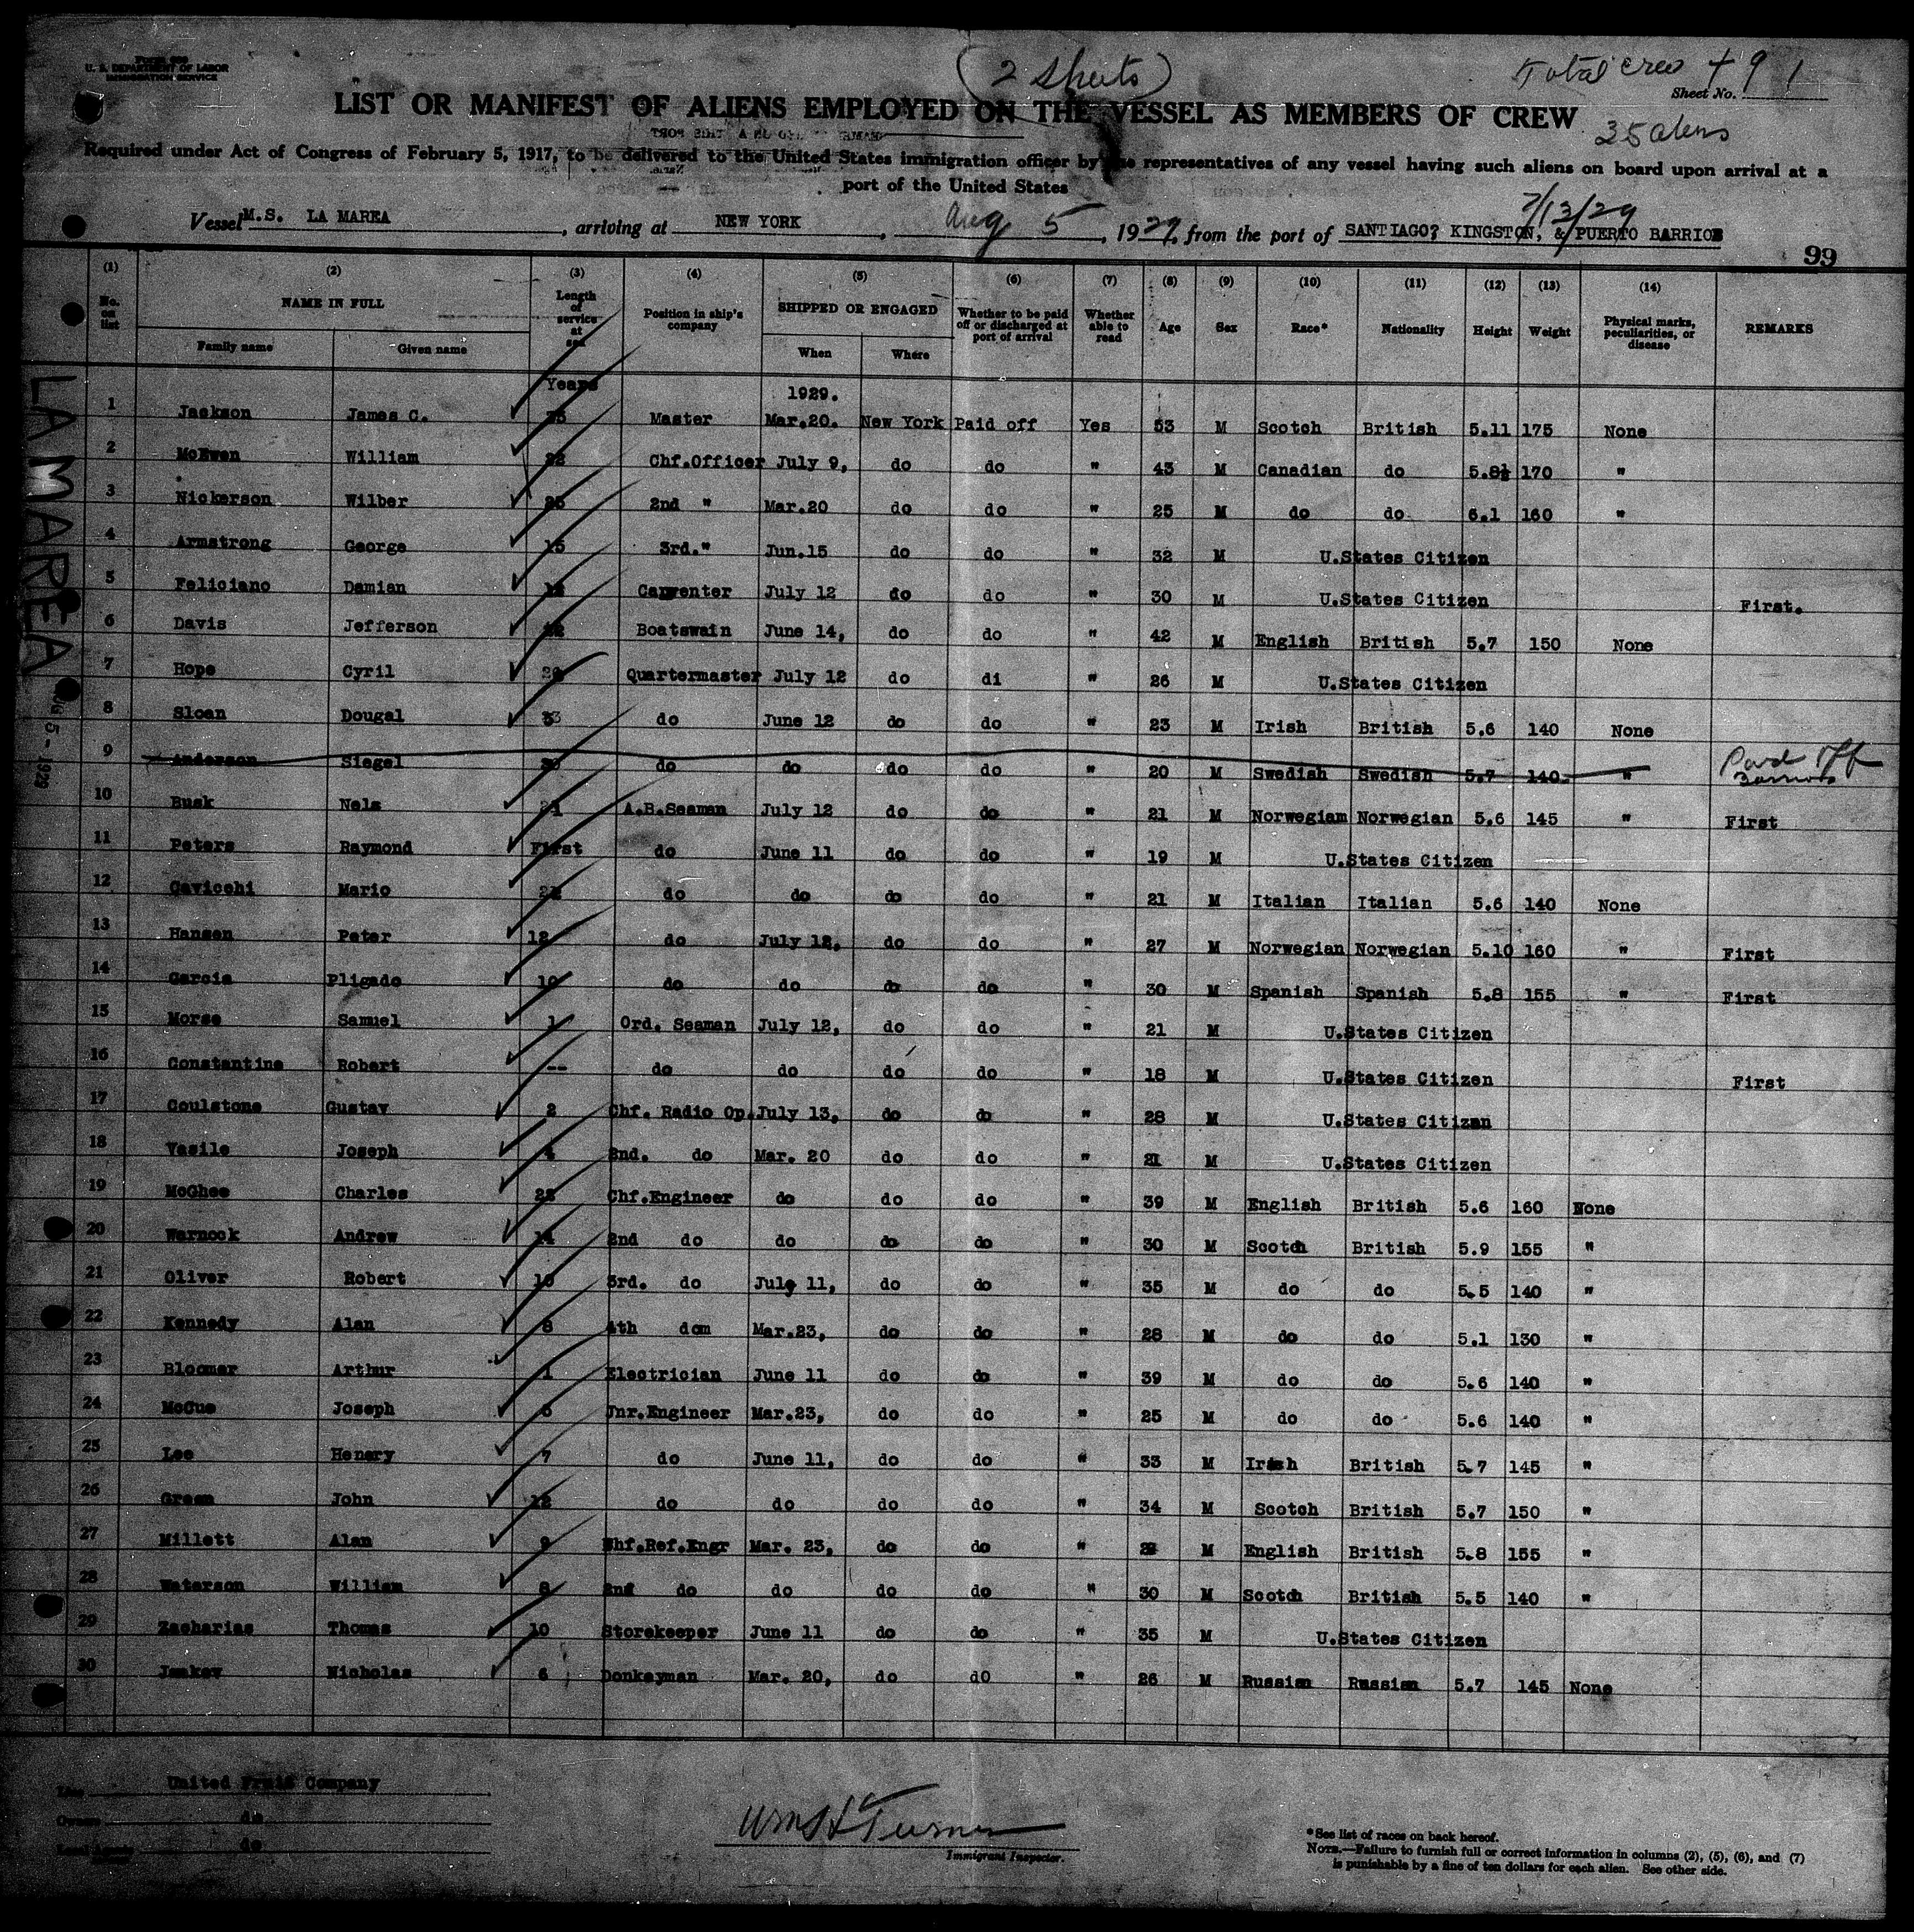 Form 689
U. S. DEPARTMENT OF LABOR
IMMIGRATION SERVICE
(2 Sheets)
Total crew 49 1
Sheet No.
LIST OR MANIFEST OF ALIENS EMPLOYED ON THE VESSEL AS MEMBERS OF CREW
35 aliens
Required under Act of Congress of February 5, 1917, to be delivered to the United States immigration officer by the representatives of any vessel having such aliens on board upon arrival at a
port of the United States
7/13/29
Vessel M.S. LA MAREA, arriving at NEW YORK, Aug 5, 1929, from the port of SANTIAGO? KINGSTON, & PUERTO BARRIOS
99
(1) (2) (3) (4) (5) (6) (7) (8) (9) (10) (11) (12) (13) (14)
No. on list NAME IN FULL Family name Given name Length of service at sea Position in ship's company SHIPPED OR ENGAGED When Where Whether to be paid off or discharged at port of arrival Whether able to read Age Sex Race* Nationality Height Weight Physical marks, peculiarities, or disease REMARKS
Years 1929.
1 Jackson James C. Master Mar.20. New York Paid off Yes 53 M Scotch British 5.11 175 None
2 McEwen William Chf.Officer July 9, do do " 43 M Canadian do 5.8½ 170 "
3 Nickerson Wilber 2nd " Mar.20 do do " 25 M do do 6.1 160 "
4 Armstrong George 15 3rd." Jun.15 do do " 32 M U.States Citizen
5 Feliciano Damian Carpenter July 12 do do " 30 M U.States Citizen First.
6 Davis Jefferson Boatswain June 14, do do " 42 M English British 5.7 150 None
7 Hope Cyril Quartermaster July 12 do di " 26 M U.States Citizen
8 Sloan Dougal do June 12 do do " 23 M Irish British 5.6 140 None
9 Anderson Siegel do do do do " 20 M Swedish Swedish 5.7 140 " Paid off Barrios
10 Busk Nels A.B.Seaman July 12 do do " 21 M Norwegian Norwegian 5.6 145 " First
11 Peters Raymond First do June 11 do do " 19 M U.States Citizen
12 Cavicchi Mario do do do do " 21 M Italian Italian 5.6 140 None
13 Hansen Peter 12 do July 12, do do " 27 M Norwegian Norwegian 5.10 160 " First
14 Garcia Pligado 10 do do do do " 30 M Spanish Spanish 5.8 155 " First
15 Morse Samuel 1 Ord. Seaman July 12, do do " 21 M U.States Citizen
16 Constantine Robert -- do do do do " 18 M U.States Citizen First
17 Coulstone Gustav 2 Chf. Radio Op. July 13, do do " 28 M U.States Citizen
18 Vasile Joseph 4 2nd. do Mar. 20 do do " 21 M U.States Citizen
19 McGhee Charles Chf.Engineer do do do " 39 M English British 5.6 160 None
20 Warnock Andrew 14 2nd do do do do " 30 M Scotch British 5.9 155 "
21 Oliver Robert 10 3rd. do July 11, do do " 35 M do do 5.5 140 "
22 Kennedy Alan 8 4th dom Mar.23, do do " 28 M do do 5.1 130 "
23 Bloomer Arthur 1 Electrician June 11 do do " 39 M do do 5.6 140 "
24 McGue Joseph 6 Jnr.Engineer Mar.23, do do " 25 M do do 5.6 140 "
25 Lee Henery 7 do June 11, do do " 33 M Irish British 5.7 145 "
26 Green John 12 do do do do " 34 M Scotch British 5.7 150 "
27 Millett Alan 9 Chf.Ref.Engr Mar. 23, do do " M English British 5.8 155 "
28 Waterson William 8 2nd do do do do " 30 M Scotch British 5.5 140 "
29 Zacharias Thomas 10 Storekeeper June 11 do do " 35 M U.States Citizen
30 Nicholas 6 Donkeyman Mar. 20, do dO " 26 M Russian Russian 5.7 145 None
LA MAREA
AUG 5 - 1929
Line United Fruit Company
Owners do
Local Agents do
Wm H Turner
Immigrant Inspector.
*See list of races on back hereof.
NOTE.—Failure to furnish full or correct information in columns (2), (5), (6), and (7)
is punishable by a fine of ten dollars for each alien. See other side.